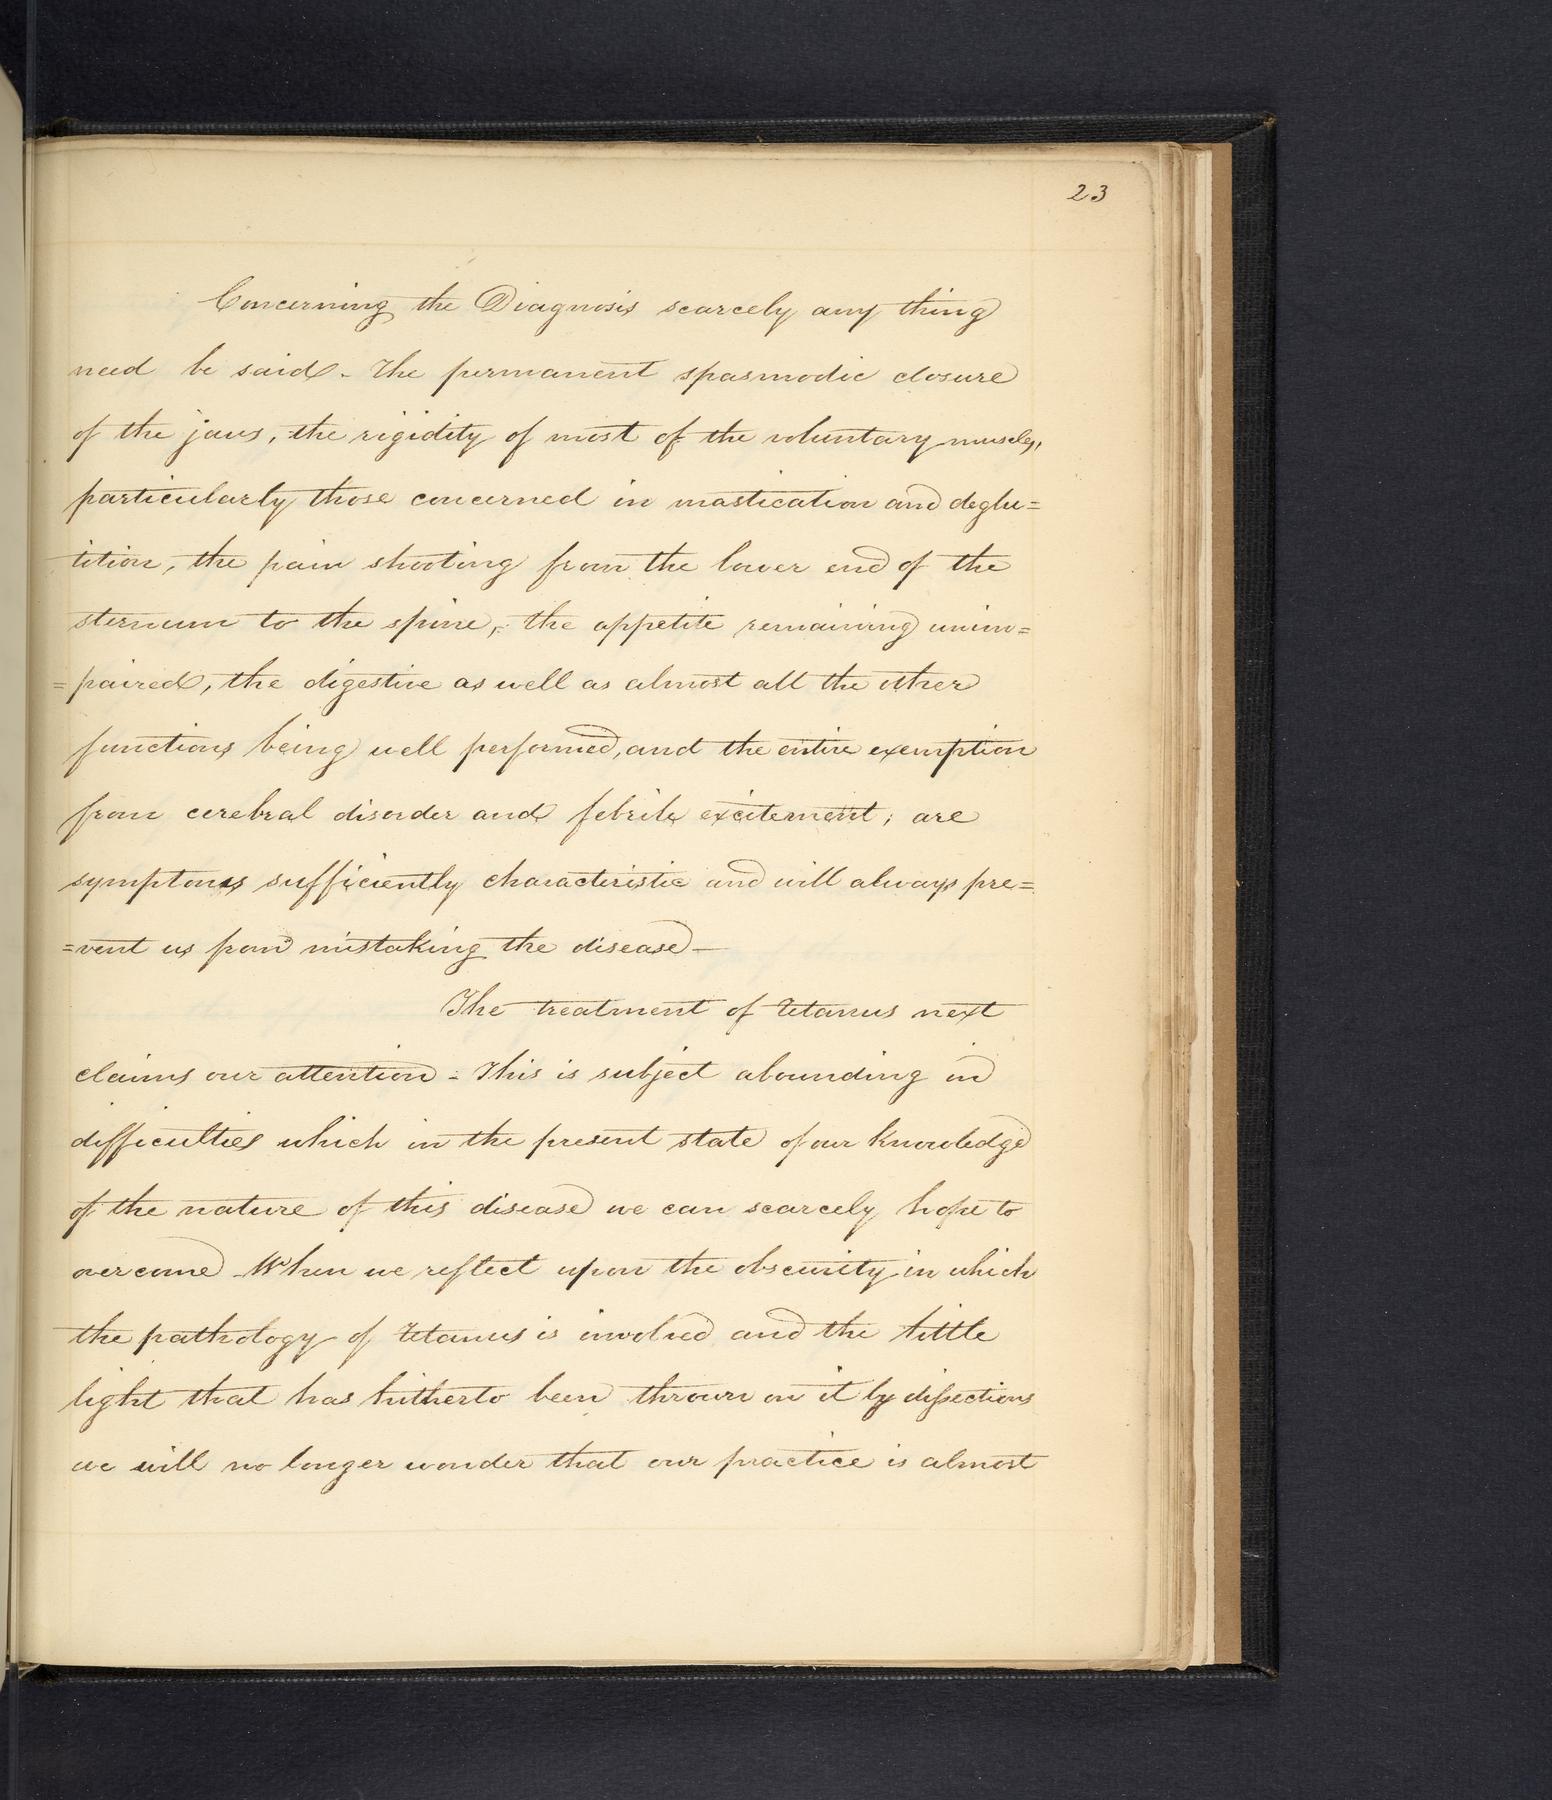 23
Concerning the Diagnosis scarcely any thing
need be said - The permanent spasmodic closure
of the jaws, the rigidity of most of the voluntary muscles,
particularly those concerned in mastication and deglu=
tition, the pain shooting from the lower end of the
sternum to the spine, the appetite remaining unim=
=paired, the digestive as well as almost all the other
functions being well performed, and the entire exemption
from cerebral disorder and febrile excitement, are
symptoms sufficiently characteristic and will always pre=
=vent us from mistaking the disease -
The treatment of Tetanus next
claims our attention - This is subject abounding in
difficulties which in the present state of our knowledge
of the nature of this disease we can scarcely hope to
overcome - When we reflect upon the obscurity in which
the pathology of Tetanus is involved and the little
light that has hitherto been thrown on it by dissections
we will no longer wonder that our practice is almost